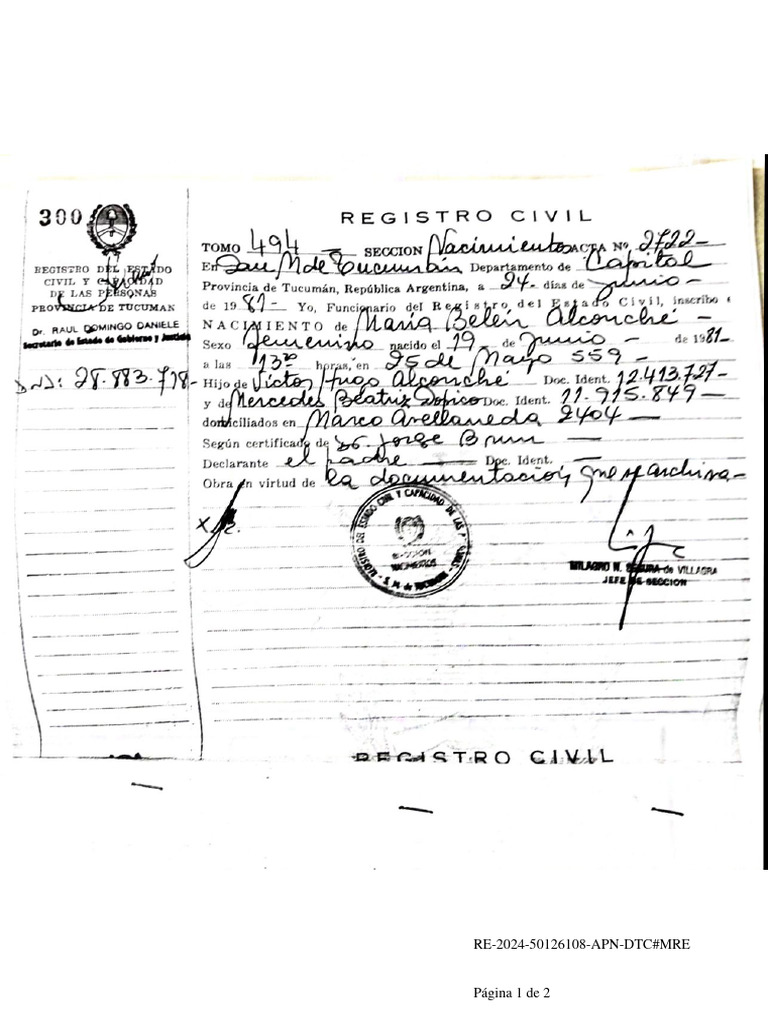 300
REGISTRO DEL ESTADO
CIVIL Y CAPACIDAD
DE LAS PERSONAS
PROVINCIA DE TUCUMAN
Dr. RAUL DOMINGO DANIELE
Secretario de Estado de Gobierno y Justicia
DNI: 28.883.718-
REGISTRO CIVIL
TOMO 494 — SECCION Nacimientos ACTA Nº 2722-
En San M. de Tucumán Departamento de Capital
Provincia de Tucumán, República Argentina, a 24- días de Junio-
de 1981- Yo, Funcionario del Registro del Estado Civil, inscribo e
NACIMIENTO de María Belén Alconché -
Sexo femenino nacido el 19 - de Junio - de 1981-
a las 13³⁰ horas, en 25 de Mayo 559 -
Hijo de Victor Hugo Alconché Doc. Ident. 12.413.727-
y de Mercedes Beatriz Doc. Ident. 11.915.849
domiciliados en Marco Avellaneda 2404 —
Según certificado de Jorge Brun —
Declarante el padre —— Doc. Ident. —
Obra en virtud de la documentación que se archiva-
REGISTRO DEL ESTADO CIVIL Y CAPACIDAD DE LAS PERSONAS - S. M. de TUCUMAN
SECCION
NACIMIENTOS
MILAGRO N. SEGURA de VILLAGRA
JEFE DE SECCION
REGISTRO CIVIL
RE-2024-50126108-APN-DTC#MRE
Página 1 de 2